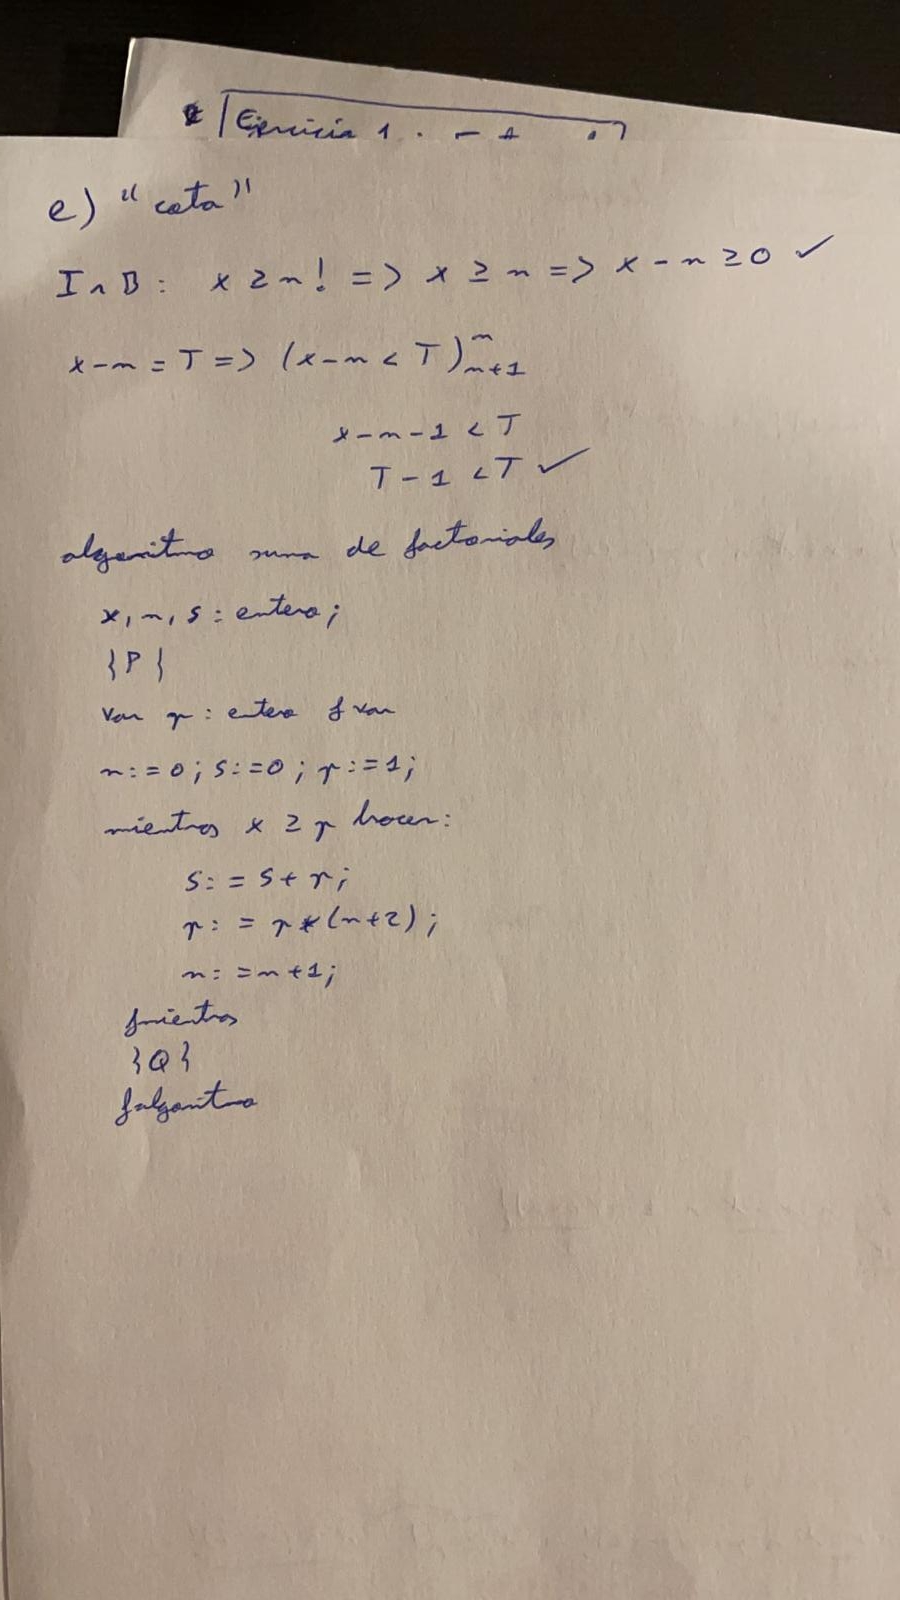 Ejercicio 1.
e) "cota"
I ∧ B : x ≥ n! => x ≥ n => x - n ≥ 0 ✓
x - n = T => (x - n < T)ⁿₙ₊₁
x - n - 1 < T
T - 1 < T ✓
algoritmo suma de factoriales
x, n, s : entero;
{P}
var r : entero fvar
n := 0; s := 0; r := 1;
mientras x ≥ r hacer:
s := s + r;
r := r * (n+2);
n := n + 1;
fmientras
{Q}
falgoritmo